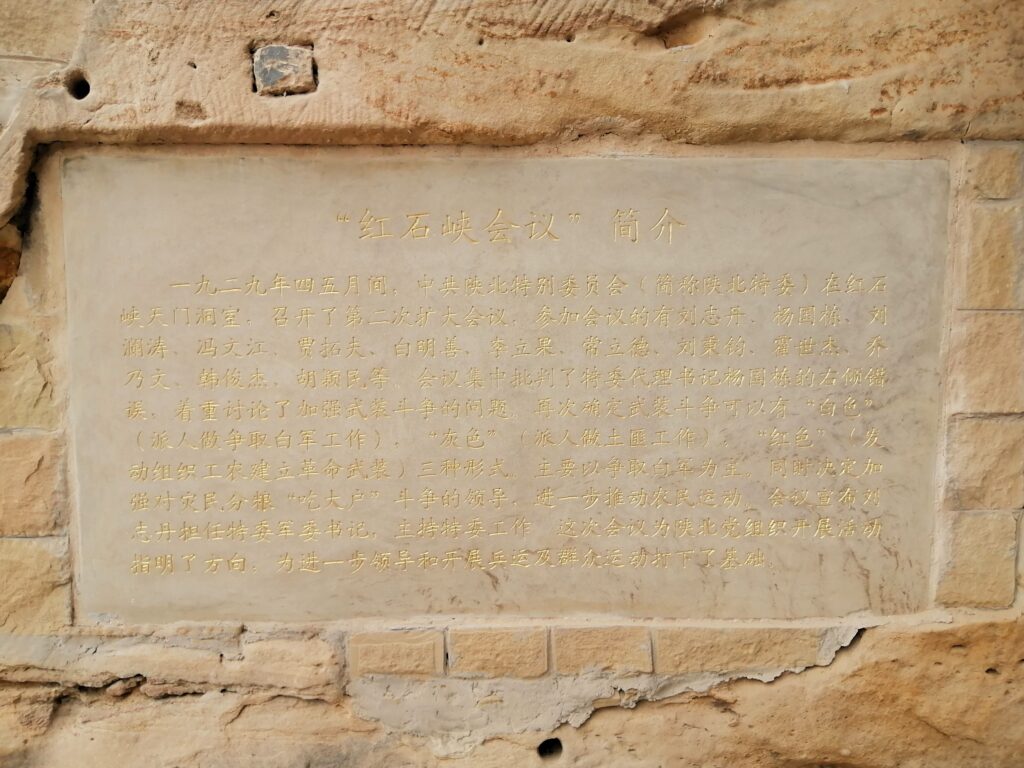 “红石峡会议”简介
一九二九年四五月间，中共陕北特别委员会（简称陕北特委）在红石
峡天门洞室，召开了第二次扩大会议。参加会议的有刘志丹、杨国栋、刘
澜涛、冯文江、贾拓夫、白明善、李立果、常立德、刘秉钧、霍世杰、乔
乃文、韩俊杰、胡颖民等。会议集中批判了特委代理书记杨国栋的右倾错
误，着重讨论了加强武装斗争的问题。再次确定武装斗争可以有“白色”
（派人做争取白军工作），“灰色”（派人做土匪工作），“红色”（发
动组织工农建立革命武装）三种形式。主要以争取白军为主。同时决定加
强对灾民分粮“吃大户”斗争的领导，进一步推动农民运动。会议宣布刘
志丹担任特委军委书记，主持特委工作。这次会议为陕北党组织开展活动
指明了方向，为进一步领导和开展兵运及群众运动打下了基础。